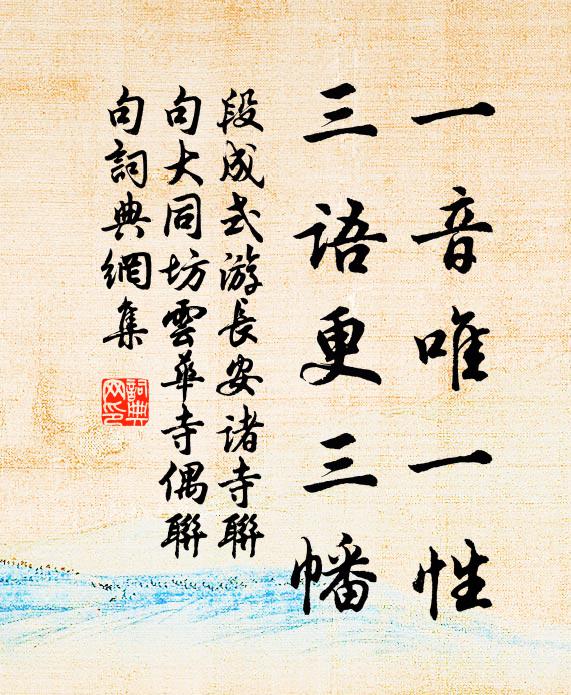 一音唯一性
三語更三幡
段成式游長安諸寺聯
句大同坊雲華寺偶聯
句詞典網集
詞典
网印